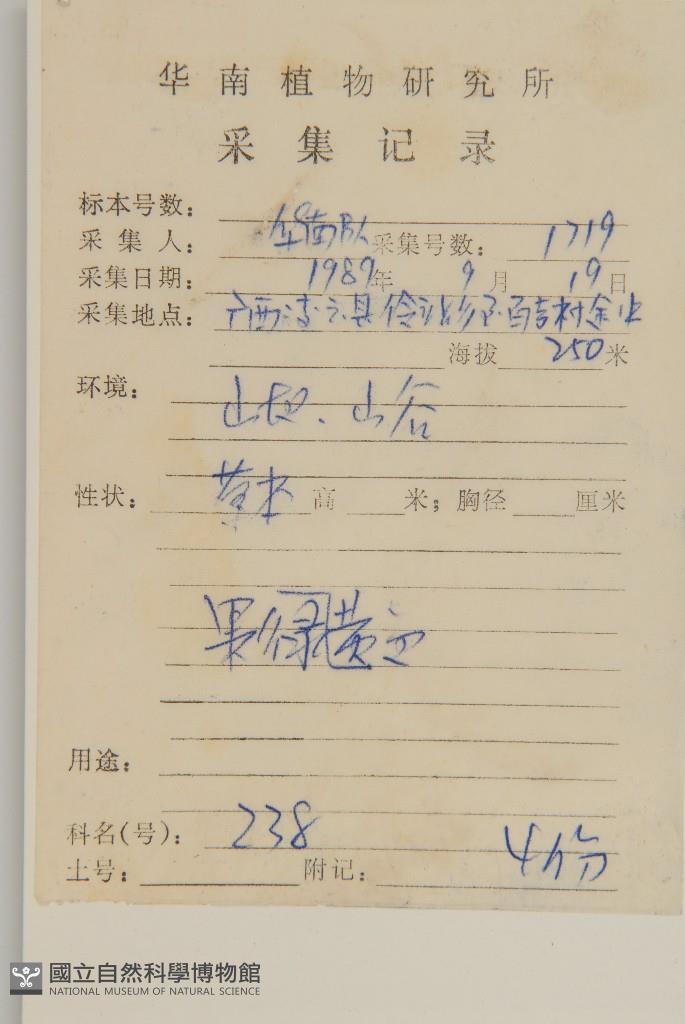 华南植物研究所
采集记录
标本号数：
采集人：华南队 采集号数：1719
采集日期：1989年9月19日
采集地点：广西凌云县伶站乡百吉村
海拔250米
环境：
山地、山谷
性状：草本 高 米；胸径 厘米
果绿黄色
用途：
科名(号)：238
土号： 附记：4份
國立自然科學博物館
NATIONAL MUSEUM OF NATURAL SCIENCE